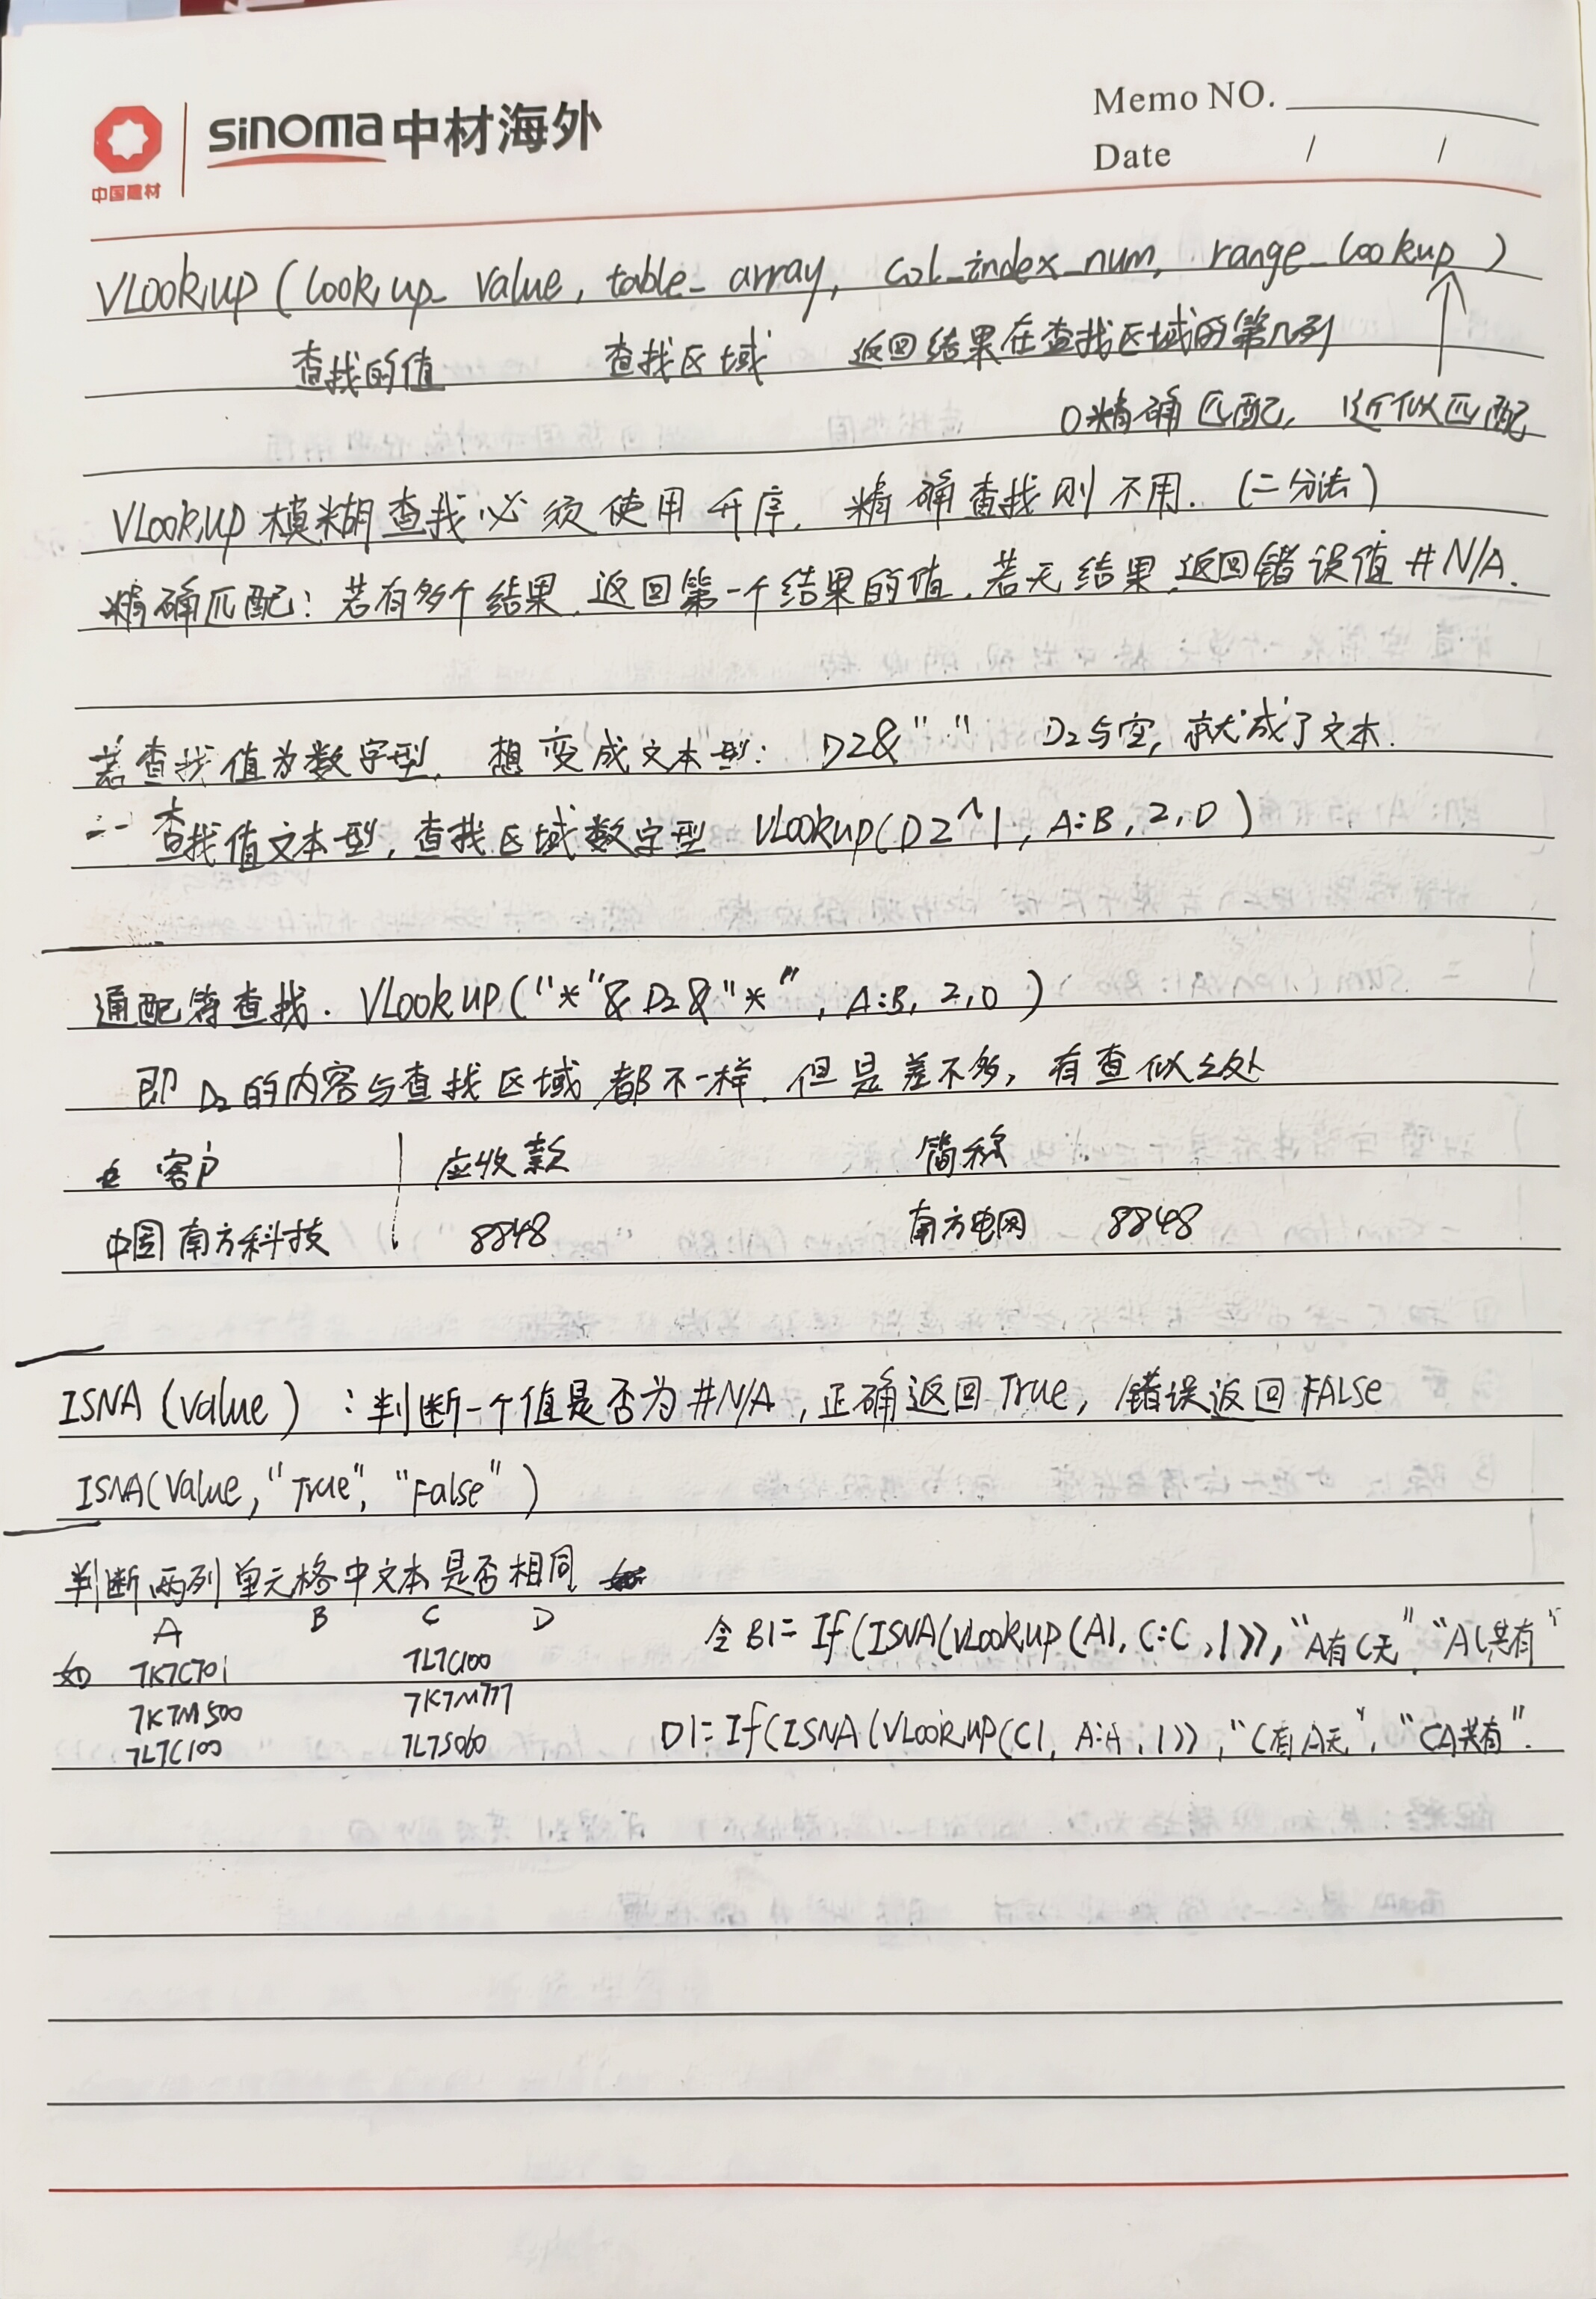 sinoma 中材海外
中国建材
Memo NO.
Date / /
VLookup ( lookup_value, table_array, col_index_num, range_lookup )
查找的值 查找区域 返回结果在查找区域的第几列
0精确匹配, 1近似匹配
VLookup 模糊查找必须使用升序, 精确查找则不用. (二分法)
精确匹配: 若有多个结果, 返回第一个结果的值, 若无结果, 返回错误值 #N/A.
若查找值为数字型, 想变成文本型: D2&" " D2与空, 就成了文本.
-- 查找值文本型, 查找区域数字型 VLookup(D2^1, A:B, 2, 0)
通配符查找. VLookup("*"& D2 &"*", A:B, 2, 0)
即 D2 的内容与查找区域都不一样, 但是差不多, 有查似之处
客户 应收款 简称
中国南方科技 8848 南方电网 8848
ISNA (value) : 判断一个值是否为 #N/A, 正确返回True, 错误返回FALse
ISNA(Value, "True", "False")
判断两列单元格中文本是否相同
A B C D
如 7K7C701 7L7C100 令B1= If(ISNA(VLookup(A1, C:C, 1)), "A有C无", "AC共有"
7K7M500 7K7M777
7L7C100 7L7S060 D1= If(ISNA(VLookup(C1, A:A, 1)), "C有A无", "CA共有".